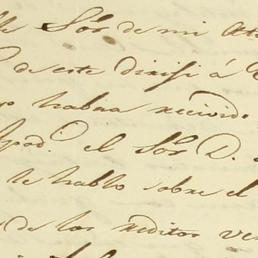 Sor de mi
de este dirijí á
habria recivido
Apod.º el Sor D.
le hablo sobre el
de los reditos